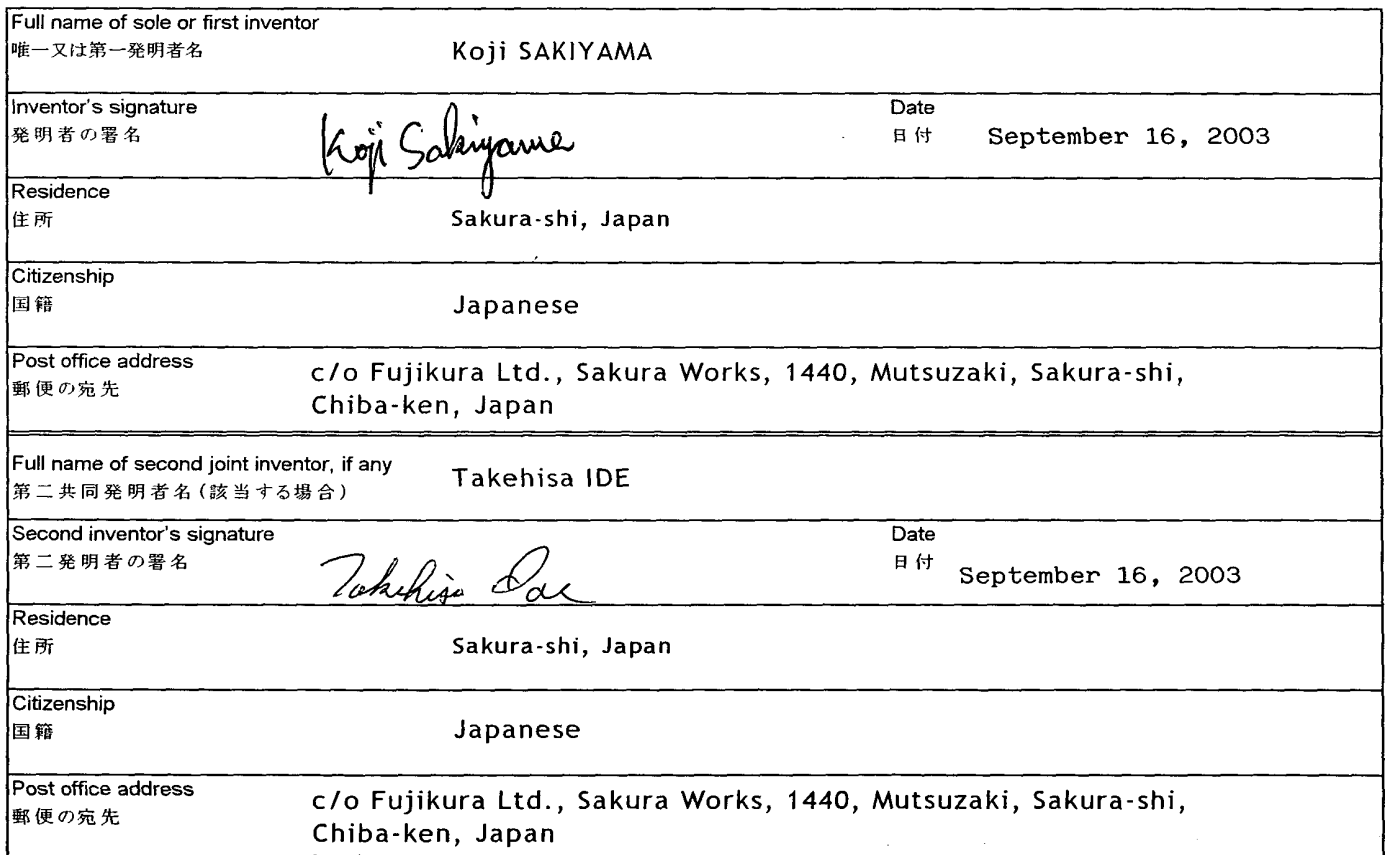 Full name of sole or first inventor
唯一又は第一発明者名
Koji SAKIYAMA
Inventor's signature
発明者の署名
Koji Sakiyama
Date
日付
September 16, 2003
Residence
住所
Sakura-shi, Japan
Citizenship
国籍
Japanese
Post office address
郵便の宛先
c/o Fujikura Ltd., Sakura Works, 1440, Mutsuzaki, Sakura-shi,
Chiba-ken, Japan
Full name of second joint inventor, if any
第二共同発明者名(該当する場合)
Takehisa IDE
Second inventor's signature
第二発明者の署名
Takehisa Ide
Date
日付
September 16, 2003
Residence
住所
Sakura-shi, Japan
Citizenship
国籍
Japanese
Post office address
郵便の宛先
c/o Fujikura Ltd., Sakura Works, 1440, Mutsuzaki, Sakura-shi,
Chiba-ken, Japan